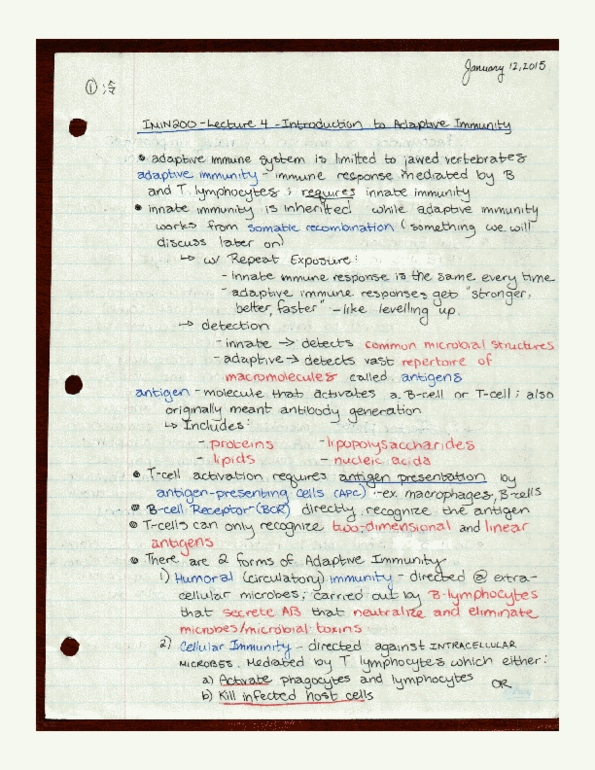 January 12, 2015
①
IMIN200 - Lecture 4 - Introduction to Adaptive Immunity
• adaptive immune system is limited to jawed vertebrates
adaptive immunity - immune response mediated by B
and T lymphocytes ; requires innate immunity
• innate immunity is inherited while adaptive immunity
works from somatic recombination (something we will
discuss later on)
↳ w/ Repeat Exposure:
- innate immune response is the same every time
- adaptive immune responses get "stronger,
better, faster" - like levelling up.
↳ detection
- innate → detects common microbial structures
- adaptive → detects vast repertoire of
macromolecules called antigens
antigen - molecule that activates a B-cell or T-cell ; also
originally meant antibody generation
↳ Includes:
- proteins - lipopolysaccharides
- lipids - nucleic acids
• T-cell activation requires antigen presentation by
antigen-presenting cells (APC) - ex. macrophages, B-cells
• B-cell Receptor (BCR) directly recognize the antigen
• T-cells can only recognize two-dimensional and linear
antigens
• There are 2 forms of Adaptive Immunity
1) Humoral (circulatory) immunity - directed @ extra-
cellular microbes; carried out by B-lymphocytes
that secrete AB that neutralize and eliminate
microbes/microbial toxins
2) Cellular Immunity - directed against INTRACELLULAR
MICROBES. Mediated by T lymphocytes which either:
a) Activate phagocytes and lymphocytes OR
b) Kill infected host cells